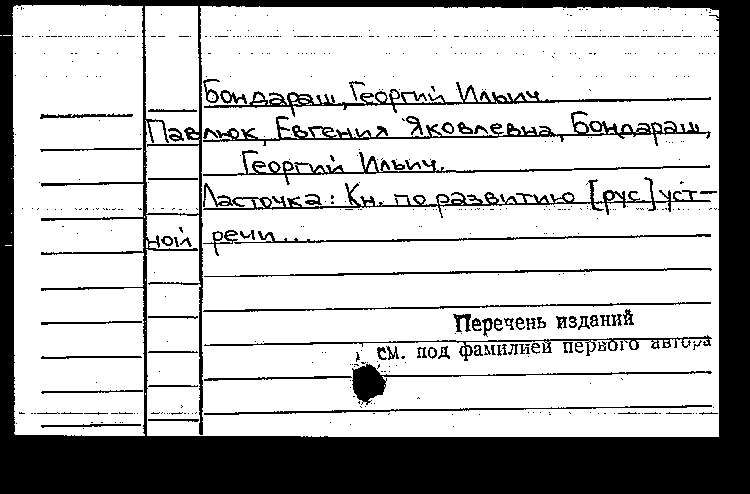 Бондараш, Георгий Ильич.
Павлюк, Евгения Яковлевна, Бондараш,
Георгий Ильич.
Ласточка: Кн. по развитию [рус] уст-
ной речи...
Перечень изданий
см. под фамилией первого автора